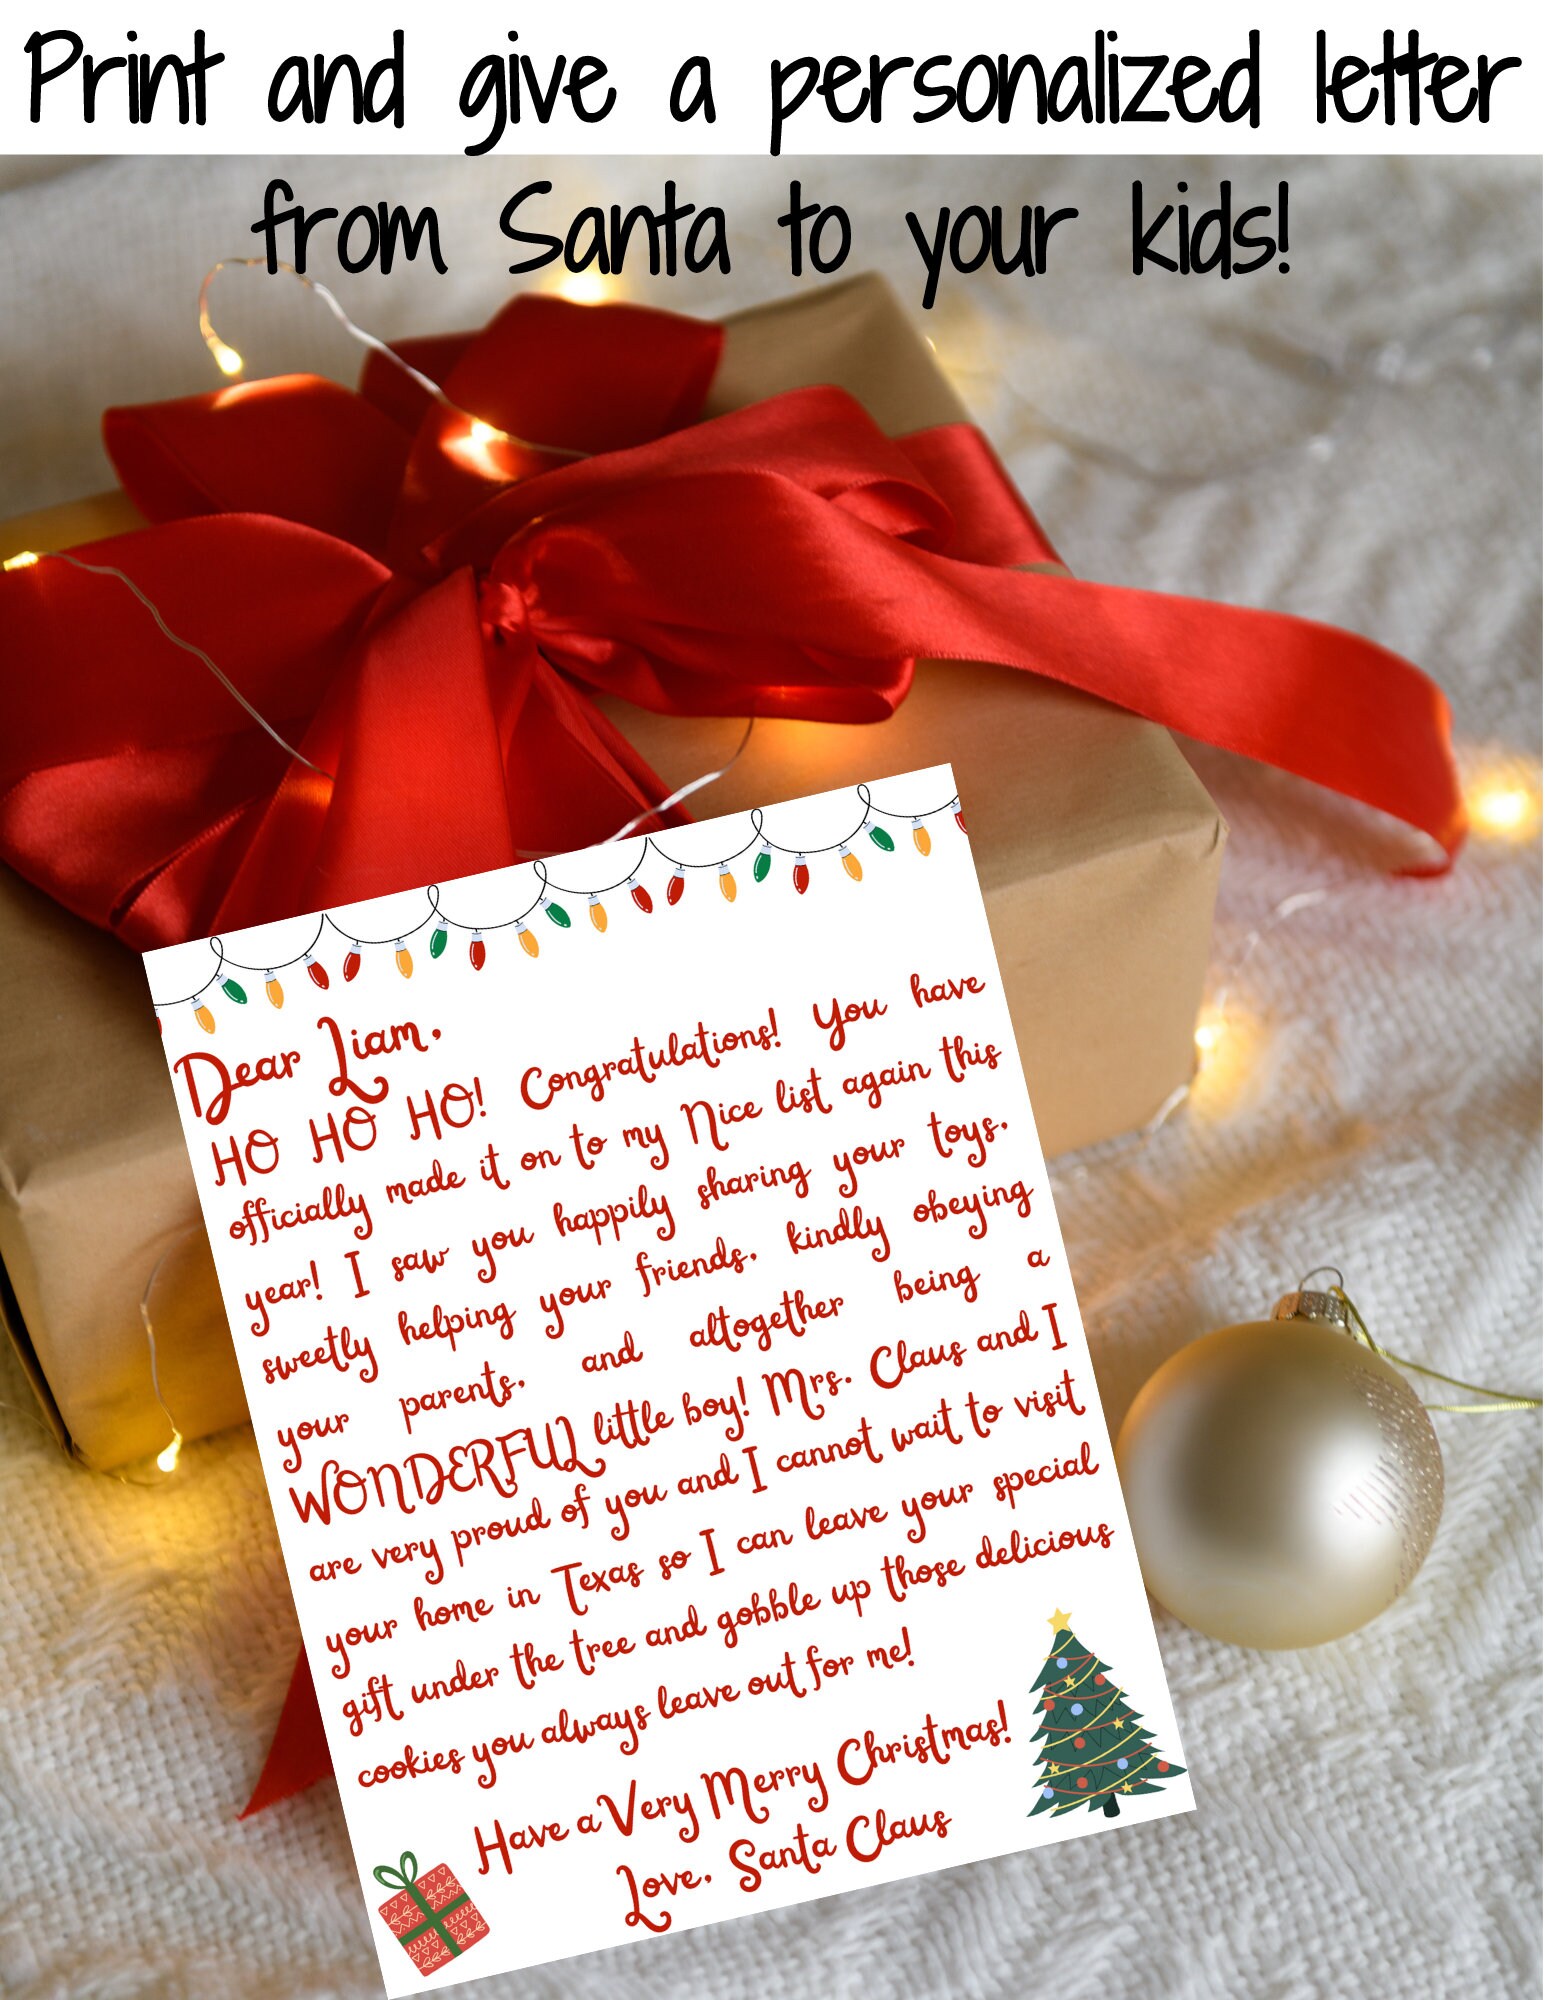 Print and give a personalized letter
from Santa to your kids!
Dear Liam,
HO HO HO! Congratulations! You have
officially made it on to my Nice list again this
year! I saw you happily sharing your toys,
sweetly helping your friends, kindly obeying
your parents, and altogether being a
WONDERFUL little boy! Mrs. Claus and I
are very proud of you and I cannot wait to visit
your home in Texas so I can leave your special
gift under the tree and gobble up those delicious
cookies you always leave out for me!
Have a Very Merry Christmas!
Love, Santa Claus